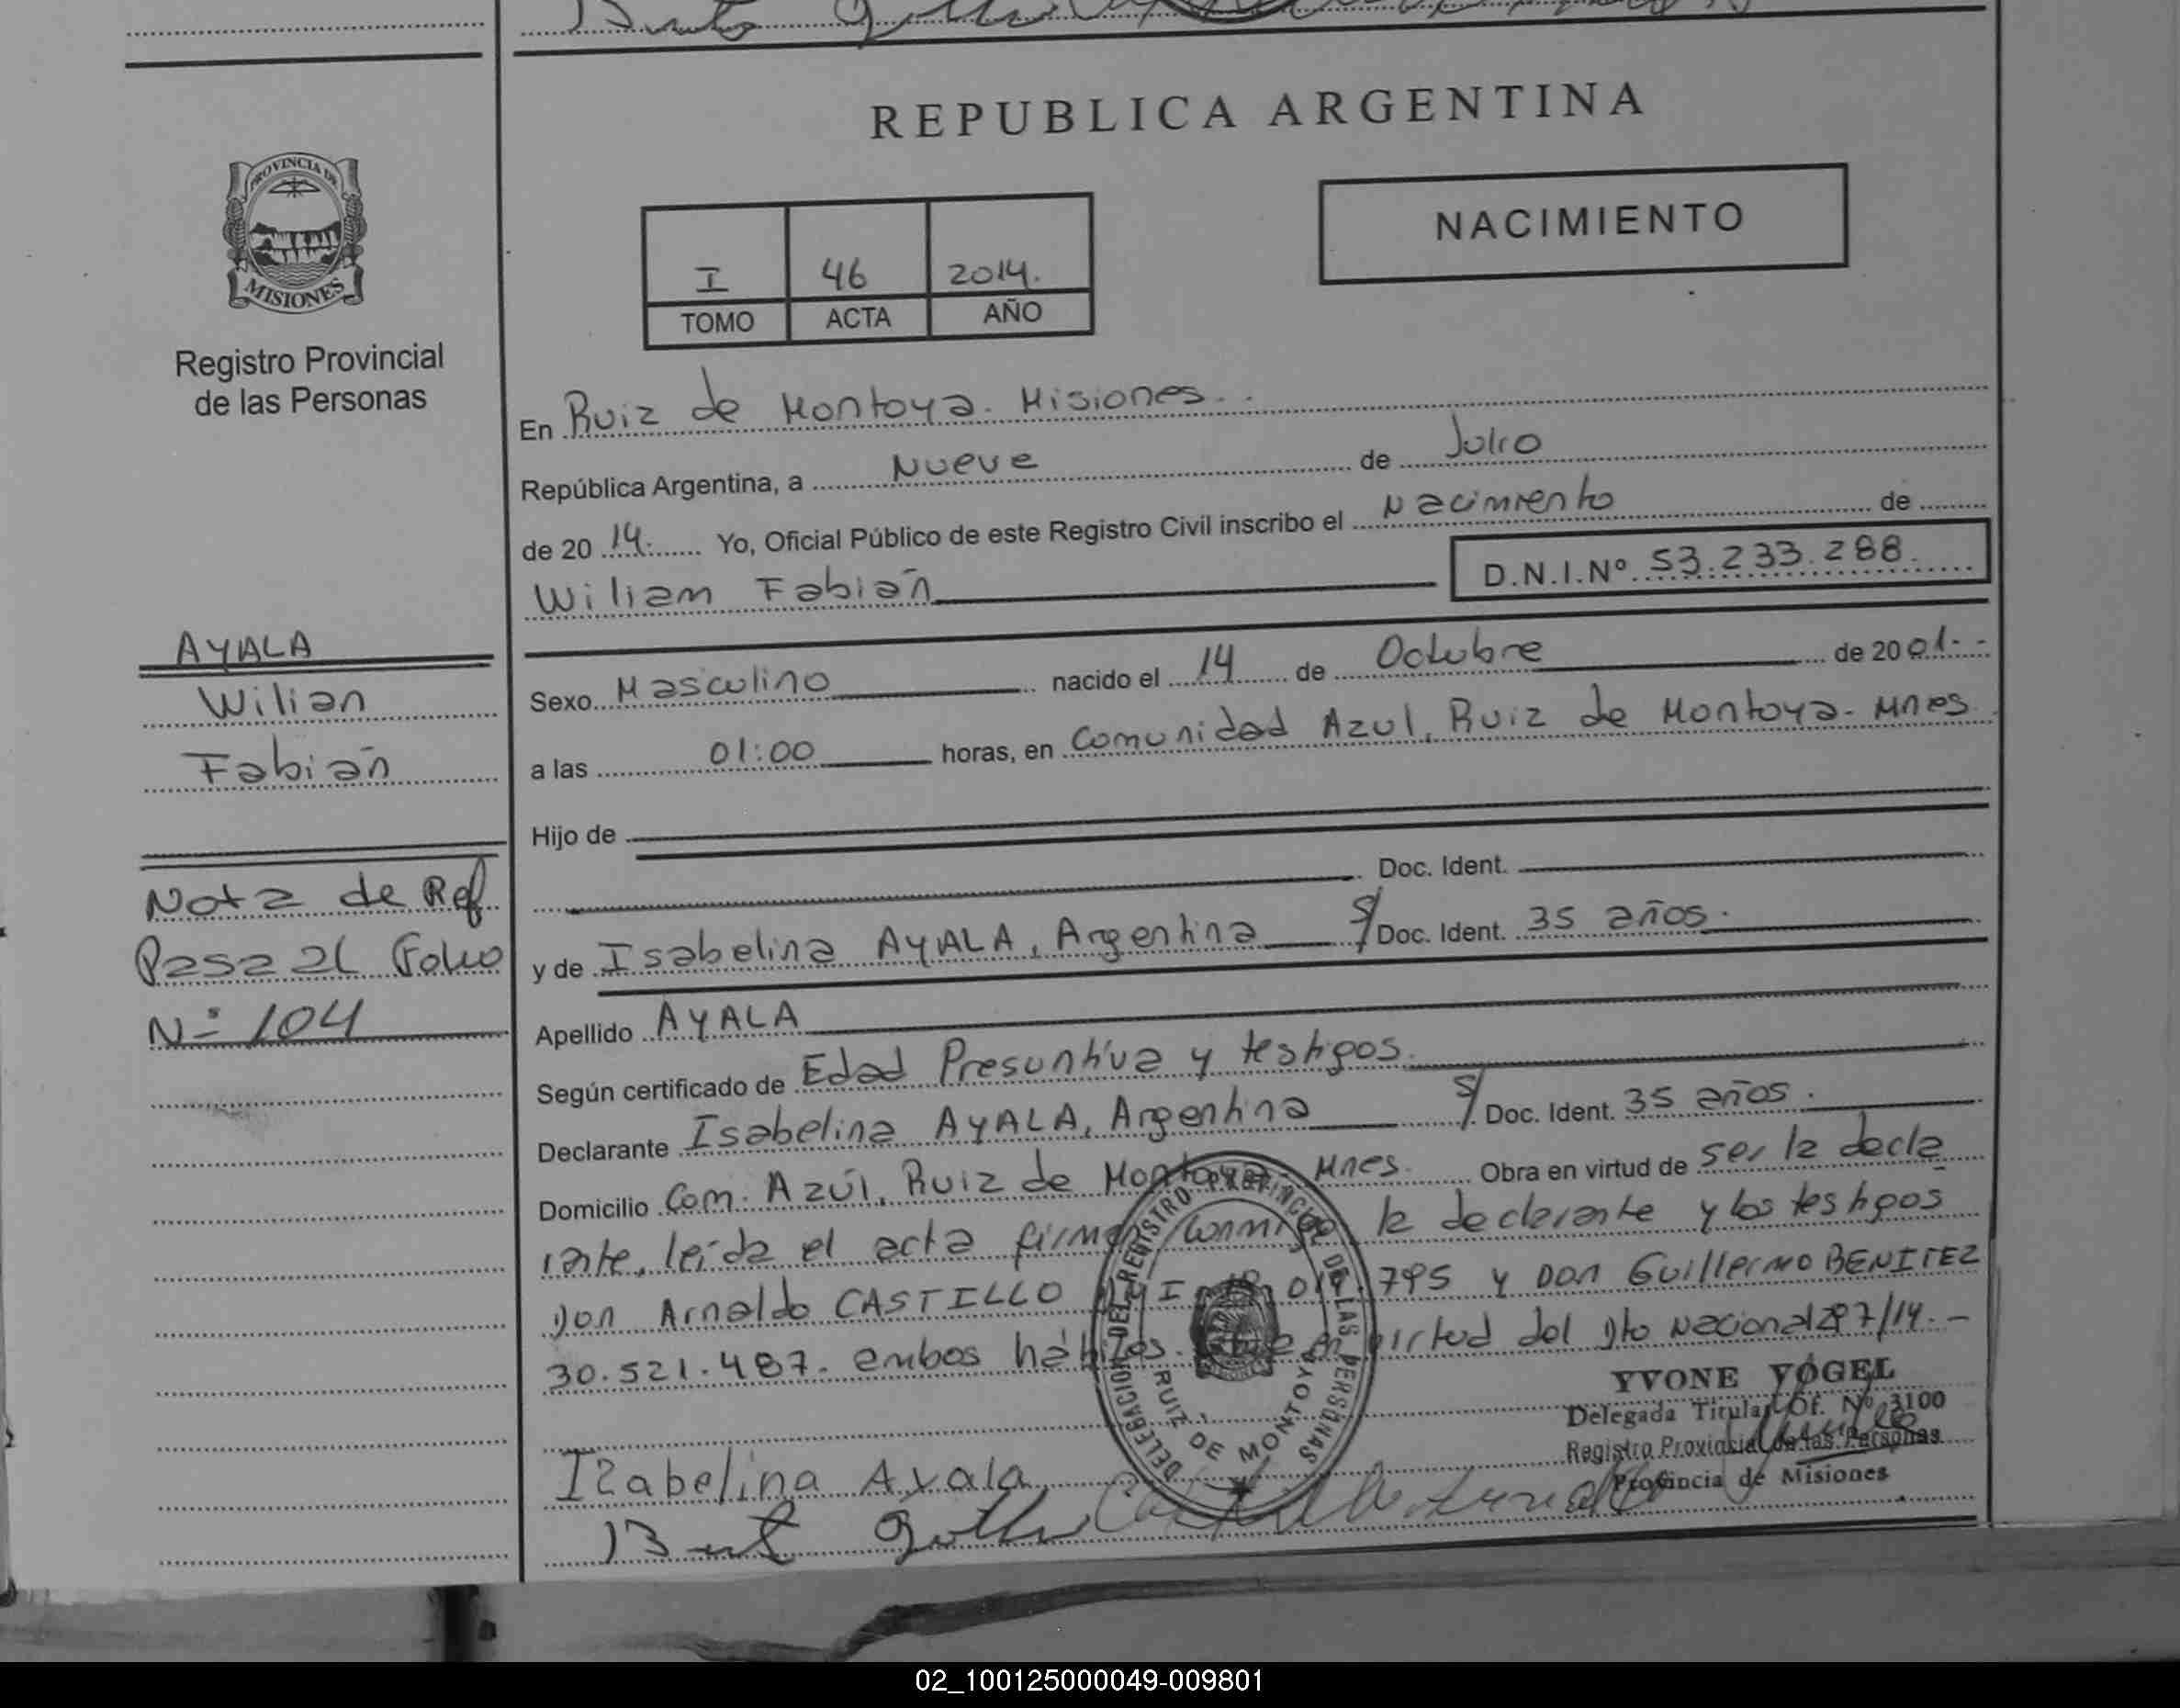 REPUBLICA ARGENTINA
PROVINCIA DE
MISIONES
Registro Provincial
de las Personas
NACIMIENTO
I 46 2014.
TOMO ACTA AÑO
En Ruiz de Montoya. Misiones..
República Argentina, a Nueve de Julio
de 2014. Yo, Oficial Público de este Registro Civil inscribo el Nacimiento de
Wiliam Fabián D.N.I.Nº 53.233.288.
AYALA
Wilian
Fabián
Sexo Masculino nacido el 14 de Octubre de 2001.-
a las 01:00 horas, en Comunidad Azul, Ruiz de Montoya- Mnes.
Hijo de
Doc. Ident.
y de Isabelina AYALA, Argentina S/ Doc. Ident. 35 años.
Nota de Ref
Pasa al Folio
Nº 104
Apellido AYALA
Según certificado de Edad Presuntiva y testigos.
Declarante Isabelina AYALA, Argentina S/ Doc. Ident. 35 años.
Domicilio Com. Azúl, Ruiz de Montoya- Mnes. Obra en virtud de ser la decla
rante, leída el acta firman conmigo la declarante y los testigos
Don Arnaldo CASTILLO 795 y Don Guillermo BENITEZ
30.521.487. ambos hábiles. virtud del Dto Nacional 297/14.-
DELEGACION DEL REGISTRO PROVINCIAL DE LAS PERSONAS
RUIZ DE MONTOYA
YVONE VOGEL
Delegada Titular Of. Nº 3100
Registro Provincial de las Personas
Provincia de Misiones
Izabelina Ayala
02_100125000049-009801